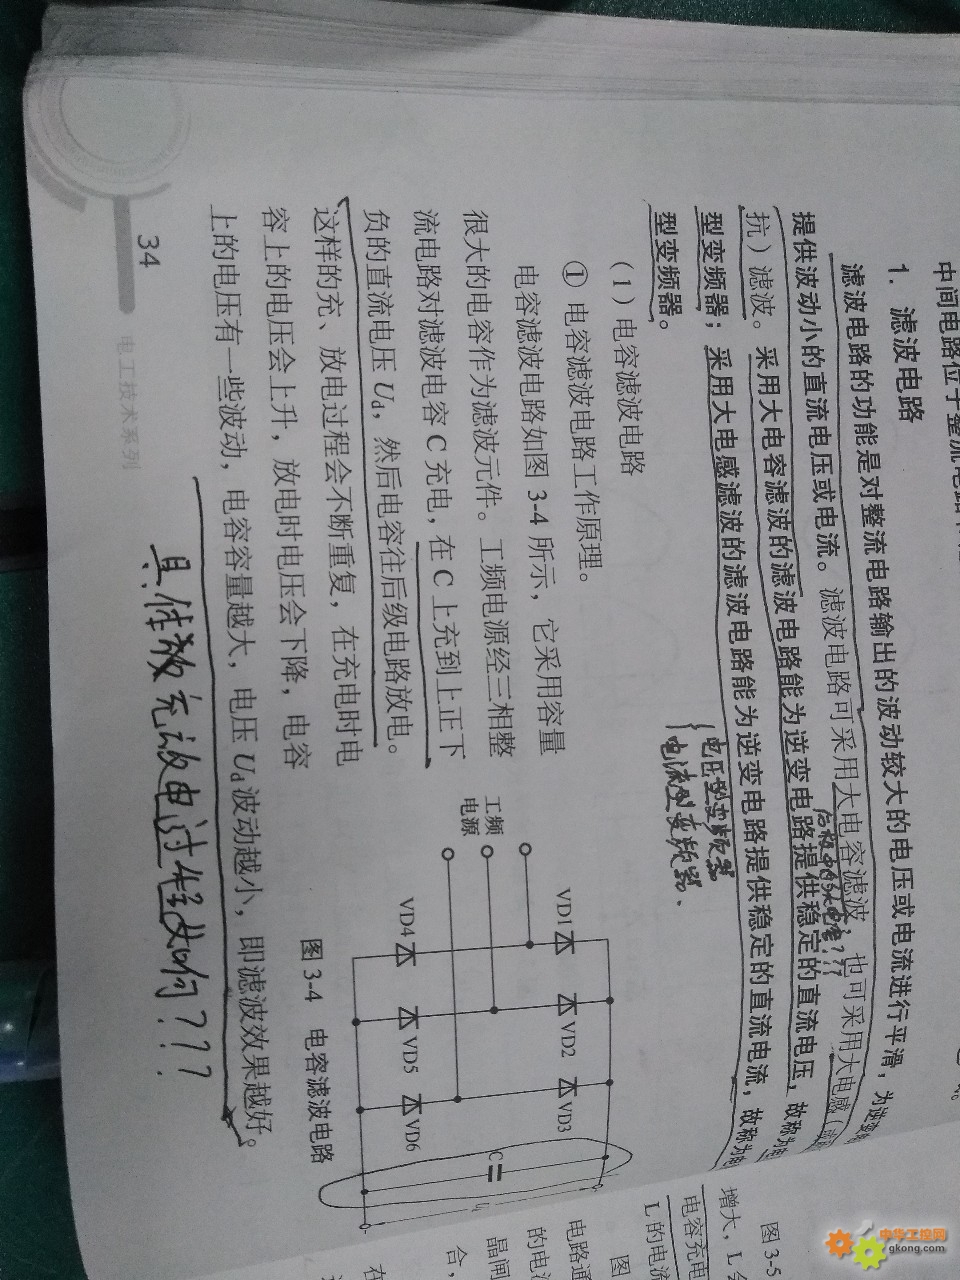 中间电路位于整流电路
1. 滤波电路
滤波电路的功能是对整流电路输出的波动较大的电压或电流进行平滑，为逆变
提供波动小的直流电压或电流。滤波电路可采用大电容滤波，也可采用大电感（
抗）滤波。采用大电容滤波的滤波电路能为逆变电路提供稳定的直流电压，故称为电
型变频器；采用大电感滤波的滤波电路能为逆变电路提供稳定的直流电流，故称为电
型变频器。
电压型变频器
电流型变频器.
（1）电容滤波电路
① 电容滤波电路工作原理。
电容滤波电路如图 3-4 所示，它采用容量
很大的电容作为滤波元件。工频电源经三相整
流电路对滤波电容 C 充电，在 C 上充到上正下
负的直流电压 Ud，然后电容往后级电路放电。
这样的充、放电过程会不断重复，在充电时电
容上的电压会上升，放电时电压会下降，电容
上的电压有一些波动，电容容量越大，电压 Ud 波动越小，即滤波效果越好。
工频
电源
VD1
VD2
VD3
VD4
VD5
VD6
C
图 3-4 电容滤波电路
具体级充放电过程如何???
34
电工技术系列
图 3-5
增大，L
电容充电
L 的电流
图
电路通
的电
晶闸
合，
在
中华工控网
gkong.com